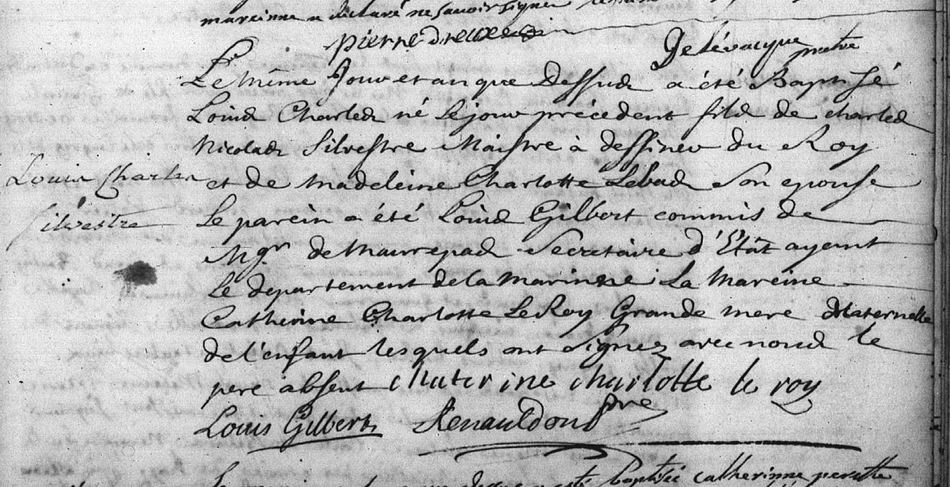 mareinne a déclaré ne savoir signer
pierre dreux
Gelévacque prêtre
Le même Jour et an que Dessus a été Baptisé
Louis Charles né le jour précédent fils de charles
Nicolas Silvestre Maistre a dessiner du Roy
et de Madeleine Charlotte Lebas Son epouse
Le parein a été Louis Gilbert commis de
Mgr de Maurepas Secretaire d'Etat ayent
Le departement de la marinne La Mareine
Catherine Charlotte Le Roy Grande mere Maternelle
de l'enfant lesquels ont signez avec nous le
pere absent Caterine charlotte le roy
Louis Gilbert Renauldon pre
Louis Charles
Silvestre
baptisée catherinne perette